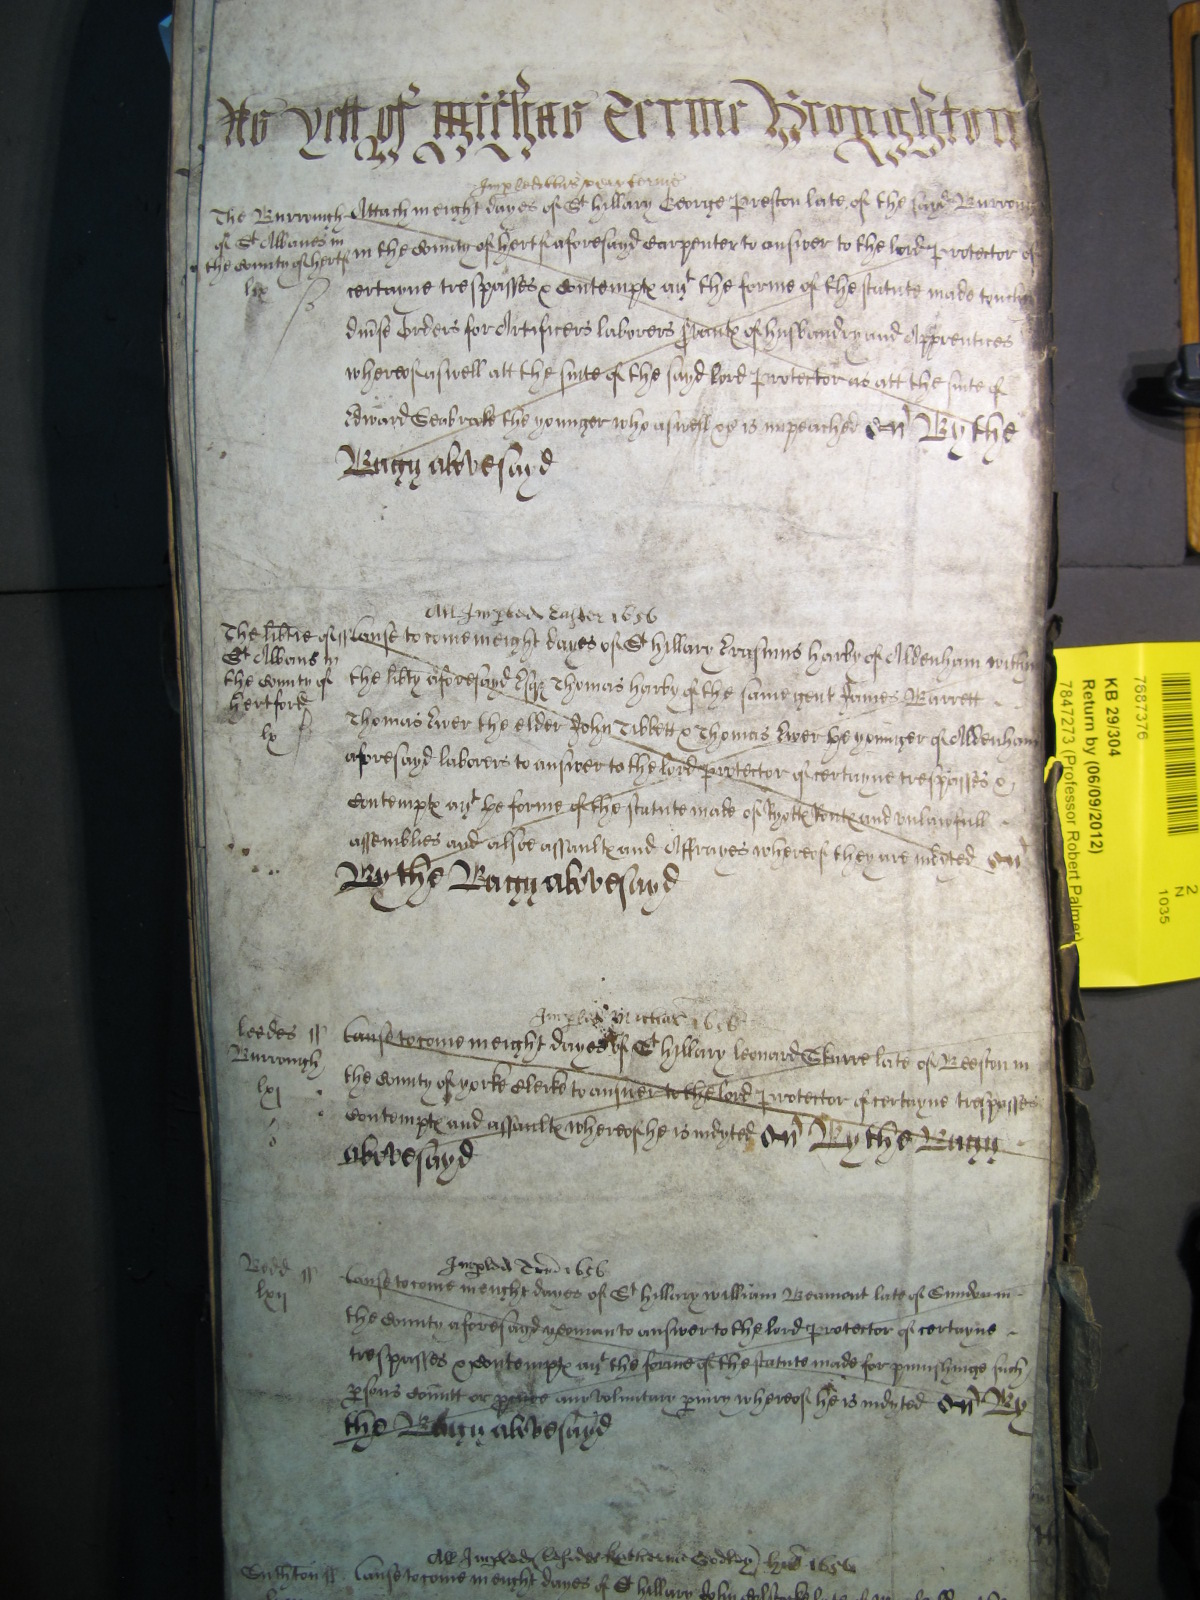 As yett of Michas Terme Broughton
Impled hillary terme
The Burrough Attach in eight dayes of St hillary George Preston late of the sayd Burrough
of St Albanes in
the County of hertf in the County of hertf aforesayd Carpenter to answer to the lord Protector of
lix
certayne trespasses & Contempts agt the forme of the statute made touching
divse Orders for Artificers laborers svants of husbandry and Apprentices
whereof aswell att the suite of the sayd lord Protector as att the suite of
Edward Seabroke the younger who aswell &c is impeached By the
Bagg abovesayd
All Impled Easter 1656
The libtie of Cause to come in eight dayes of St hillary Erasmus harby of Aldenham within
St Albans in
the County of
hertford
lx
the libty aforesayd Esqr Thomas harby of the same gent James Barrett
Thomas Ewer the elder John Tibbett & Thomas Ewer the younger of Aldenham
aforesayd laborers to answer to the lord Protector of certayne trespasses &
Contempts agt the forme of the statute made of Ryotts Routs and unlawfull
assemblies and alsoe assaults and Affrayes whereof they are indyted
By the Bagg abovesayd
Impled Michas 1656
Leedes
Burrough
lxj
Cause to come in eight dayes of St hillary Leonard Skurre late of Beeston in
the County of yorke Clerke to answer to the lord Protector of certayne trespasses
Contempts and assaults whereof he is indyted By the Bagg
abovesayd
Impled Trin 1656
Bedd
lxij
Cause to come in eight dayes of St hillary william Beamont late of Sundon in
the County aforesayd yeoman to answer to the lord Protector of certayne
trespasses & Contempts agt the forme of the statute made for punishinge such
psons Comitt or any voluntary piury whereof he is indyted By
the Bagg abovesayd
All Impled besides Katherine Godley 1656
Cause to come in eight dayes of St hillary John
7687376
KB 29/304
Return by (06/09/2012)
7847273 (Professor Robert Palmer)
2
N
1035